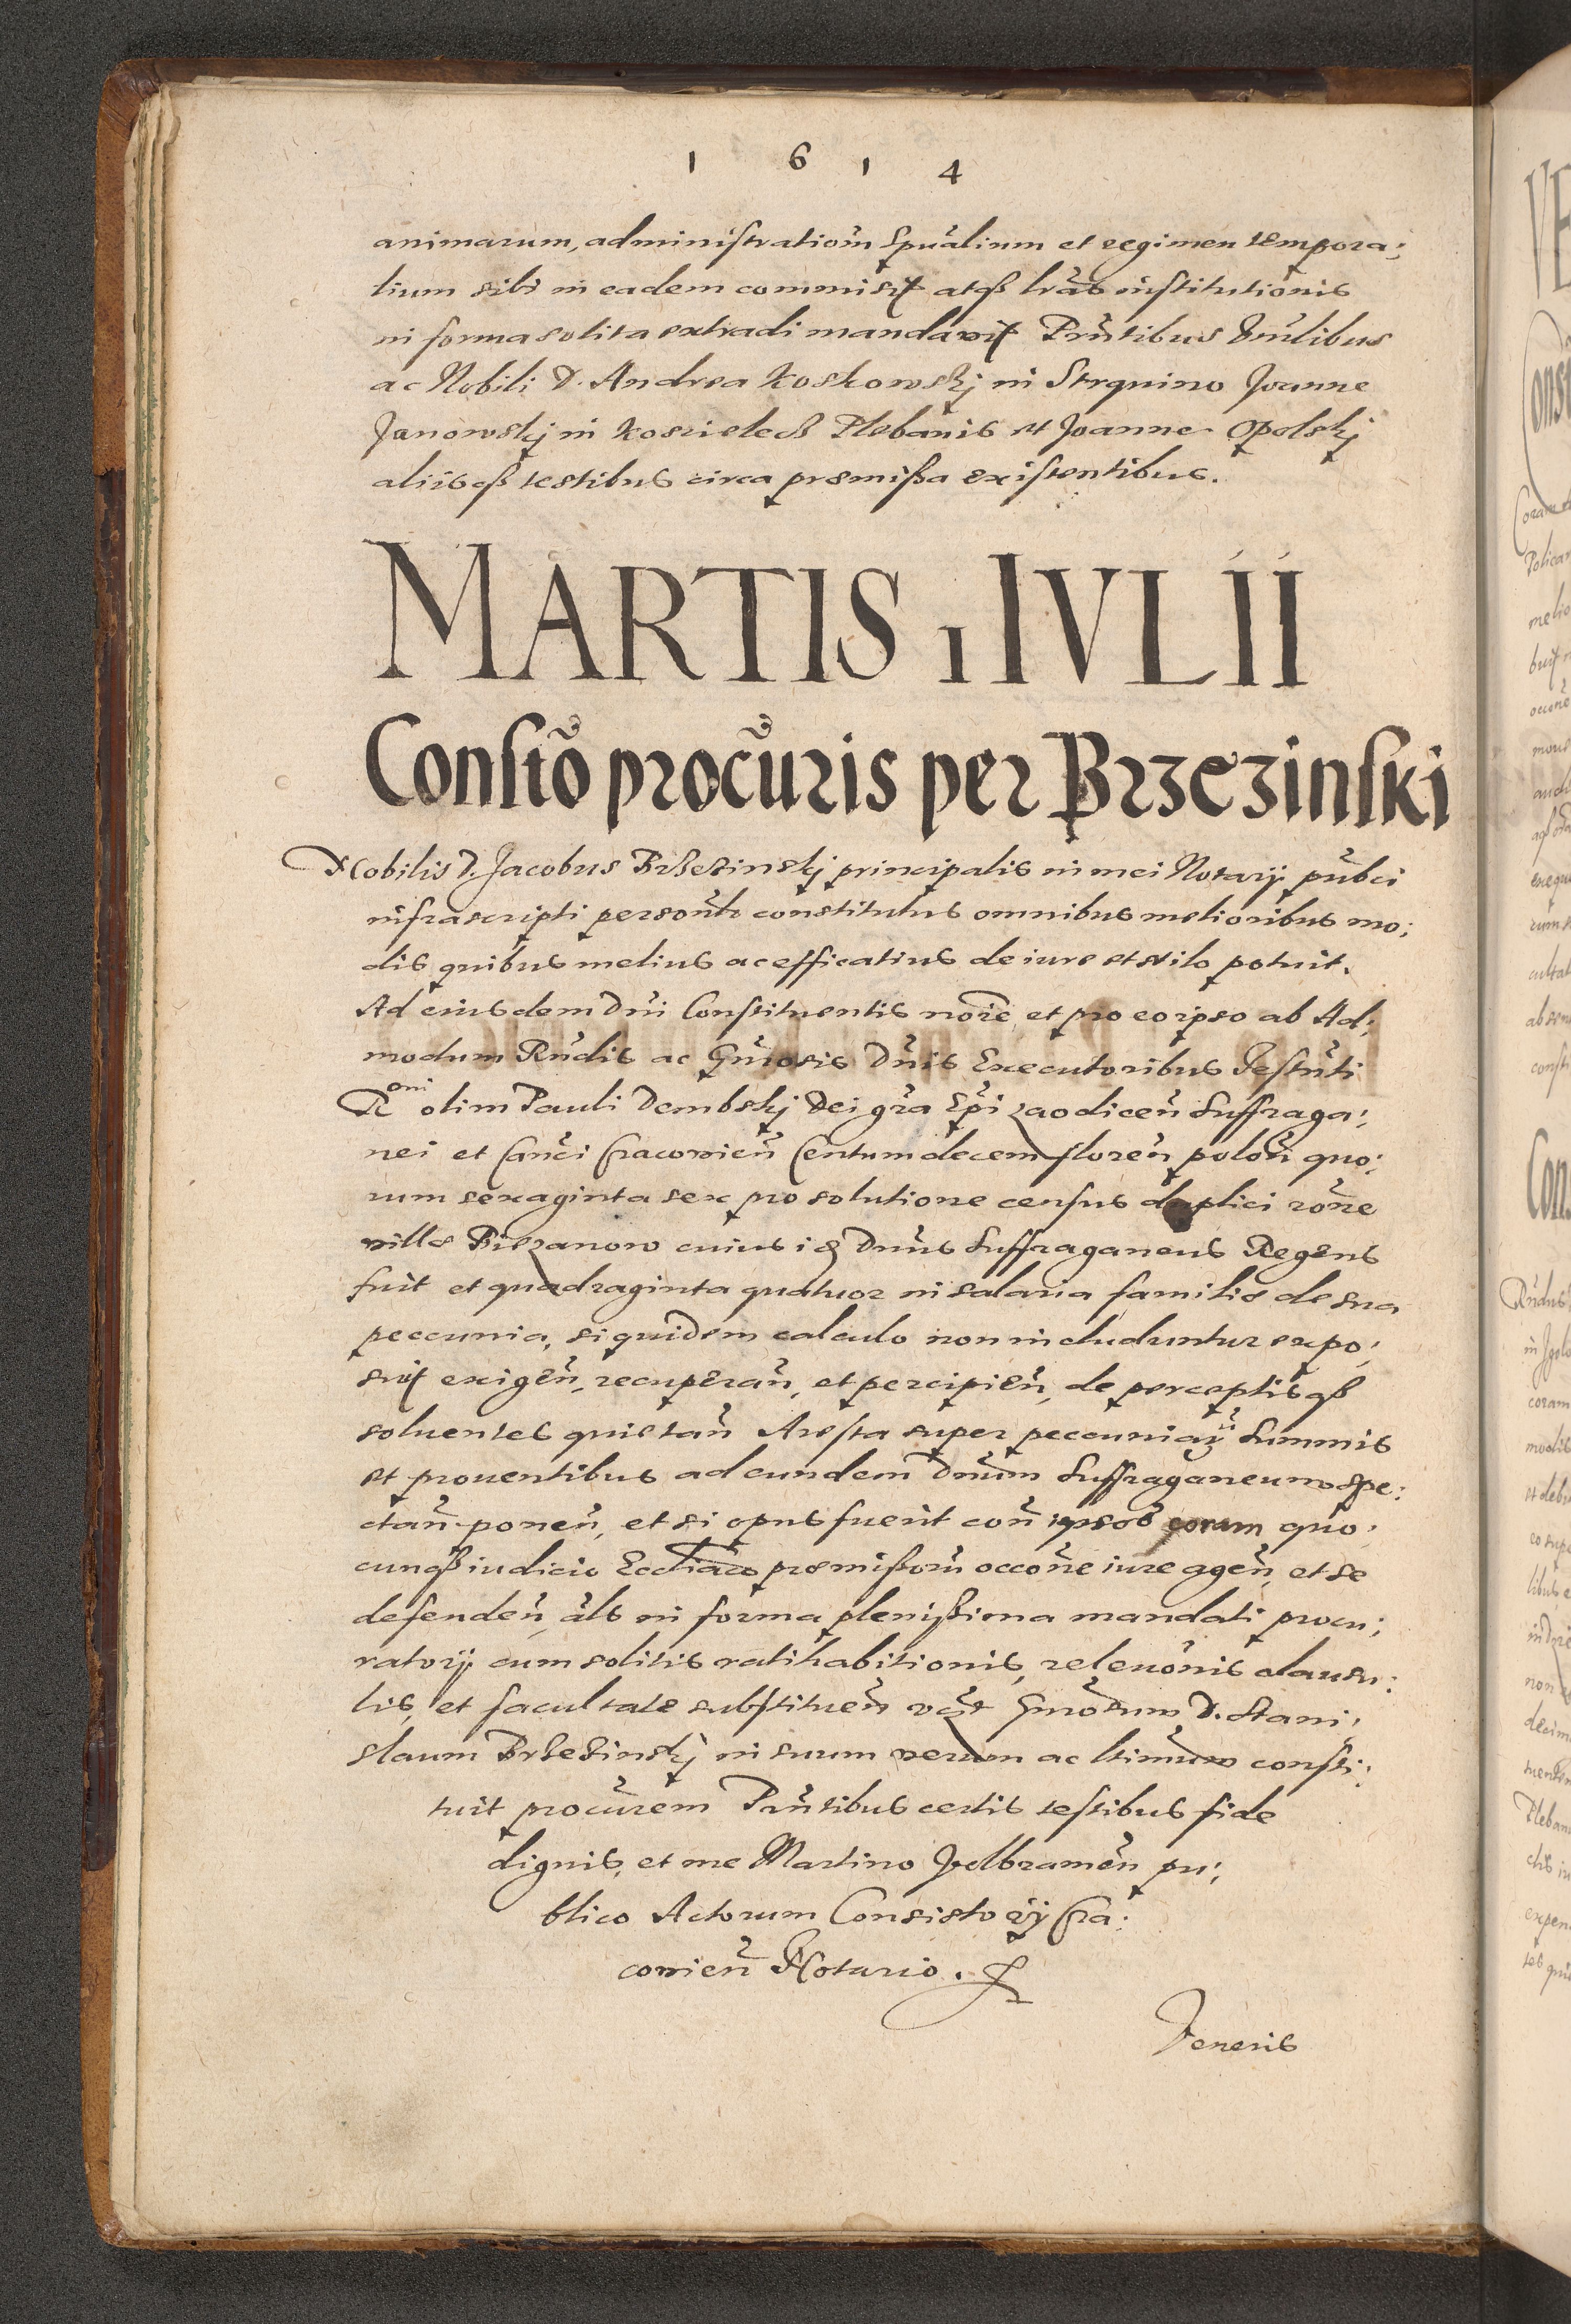 1 6 1 4
animarum, administratiom̃ Spũalium et regimen tempora:
lium sibi in eadem commisit atqß lrãs institutionis
in forma solita extradi mandavit Prñtibus Vnũlibus
ac Nobili D. Andrea Koskowskj in Joanne
Janowskj in Koscielecß Plebanis et Joanne Opolskj
aliisqß testibus circa præmißa existentibus.
MARTIS 1 IVLII
Constõ procũris per Brzezinski
Nobilis D. Jacobus Brzezinskj principalis in mei Notarij pũbci
infrascripti personĩr constitutus omnibus melioribus mo:
dis quibus melius ac efficatius de iure et stilo potuit.
Ad eiusdem Dñi Constituentis noĩe et pro eo ipso ab Ad:
modum Rñdis ac Gñrosis Dñis Executoribus Testñti
Roni olim Pauli Dembskj Dei gr̃a Ep̃i Laodiceñ Suffraga:
nei et Canc̃i Cracovieñ Centum decem floreñ poloñ quo:
rum sexaginta sex pro solutione census duplici roñe
villæ Biezanow cuius id Dnũs Suffraganeus Regens
fuit et quadraginta quatuor in salaria familiæ de sua
peccunia, siquidem calculo non includuntur expo:
suit exigeñ, recuperañ, et percipieñ, de perceptisqß
soluentes quietañ Aresta super peccuniarijs summis
et prouentibus ad eundem Dnũm Suffraganeum spe:
ctañ poneñ, et si opus fuerit coñ ipsos coram quo:
cunqß iudicio præmißorũ occoñe iure ageñ, et se
defendeñ, als̃ in forma plenißima mandati procu:
ratorij cum solitis ratihabitionis, releuõnis clausu:
lis, et facultate substitueñ Gñrosum D. Stani:
slaum Brzezinskj in suum verum ac ltimũm consti:
tuit procũrem Prñtibus certis testibus fide
dignis, et me Martino Wolbrameñ pu:
blico Actorum Consistorij Cra:
covieñ Notario.
Veneris